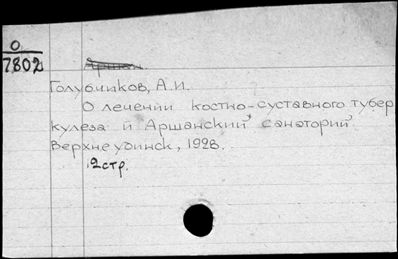 О
7802
Голубчиков, А.И.
О лечении костно-суставного тубер
кулеза и Аршанский санаторий.
Верхнеудинск, 1928.
12стр.